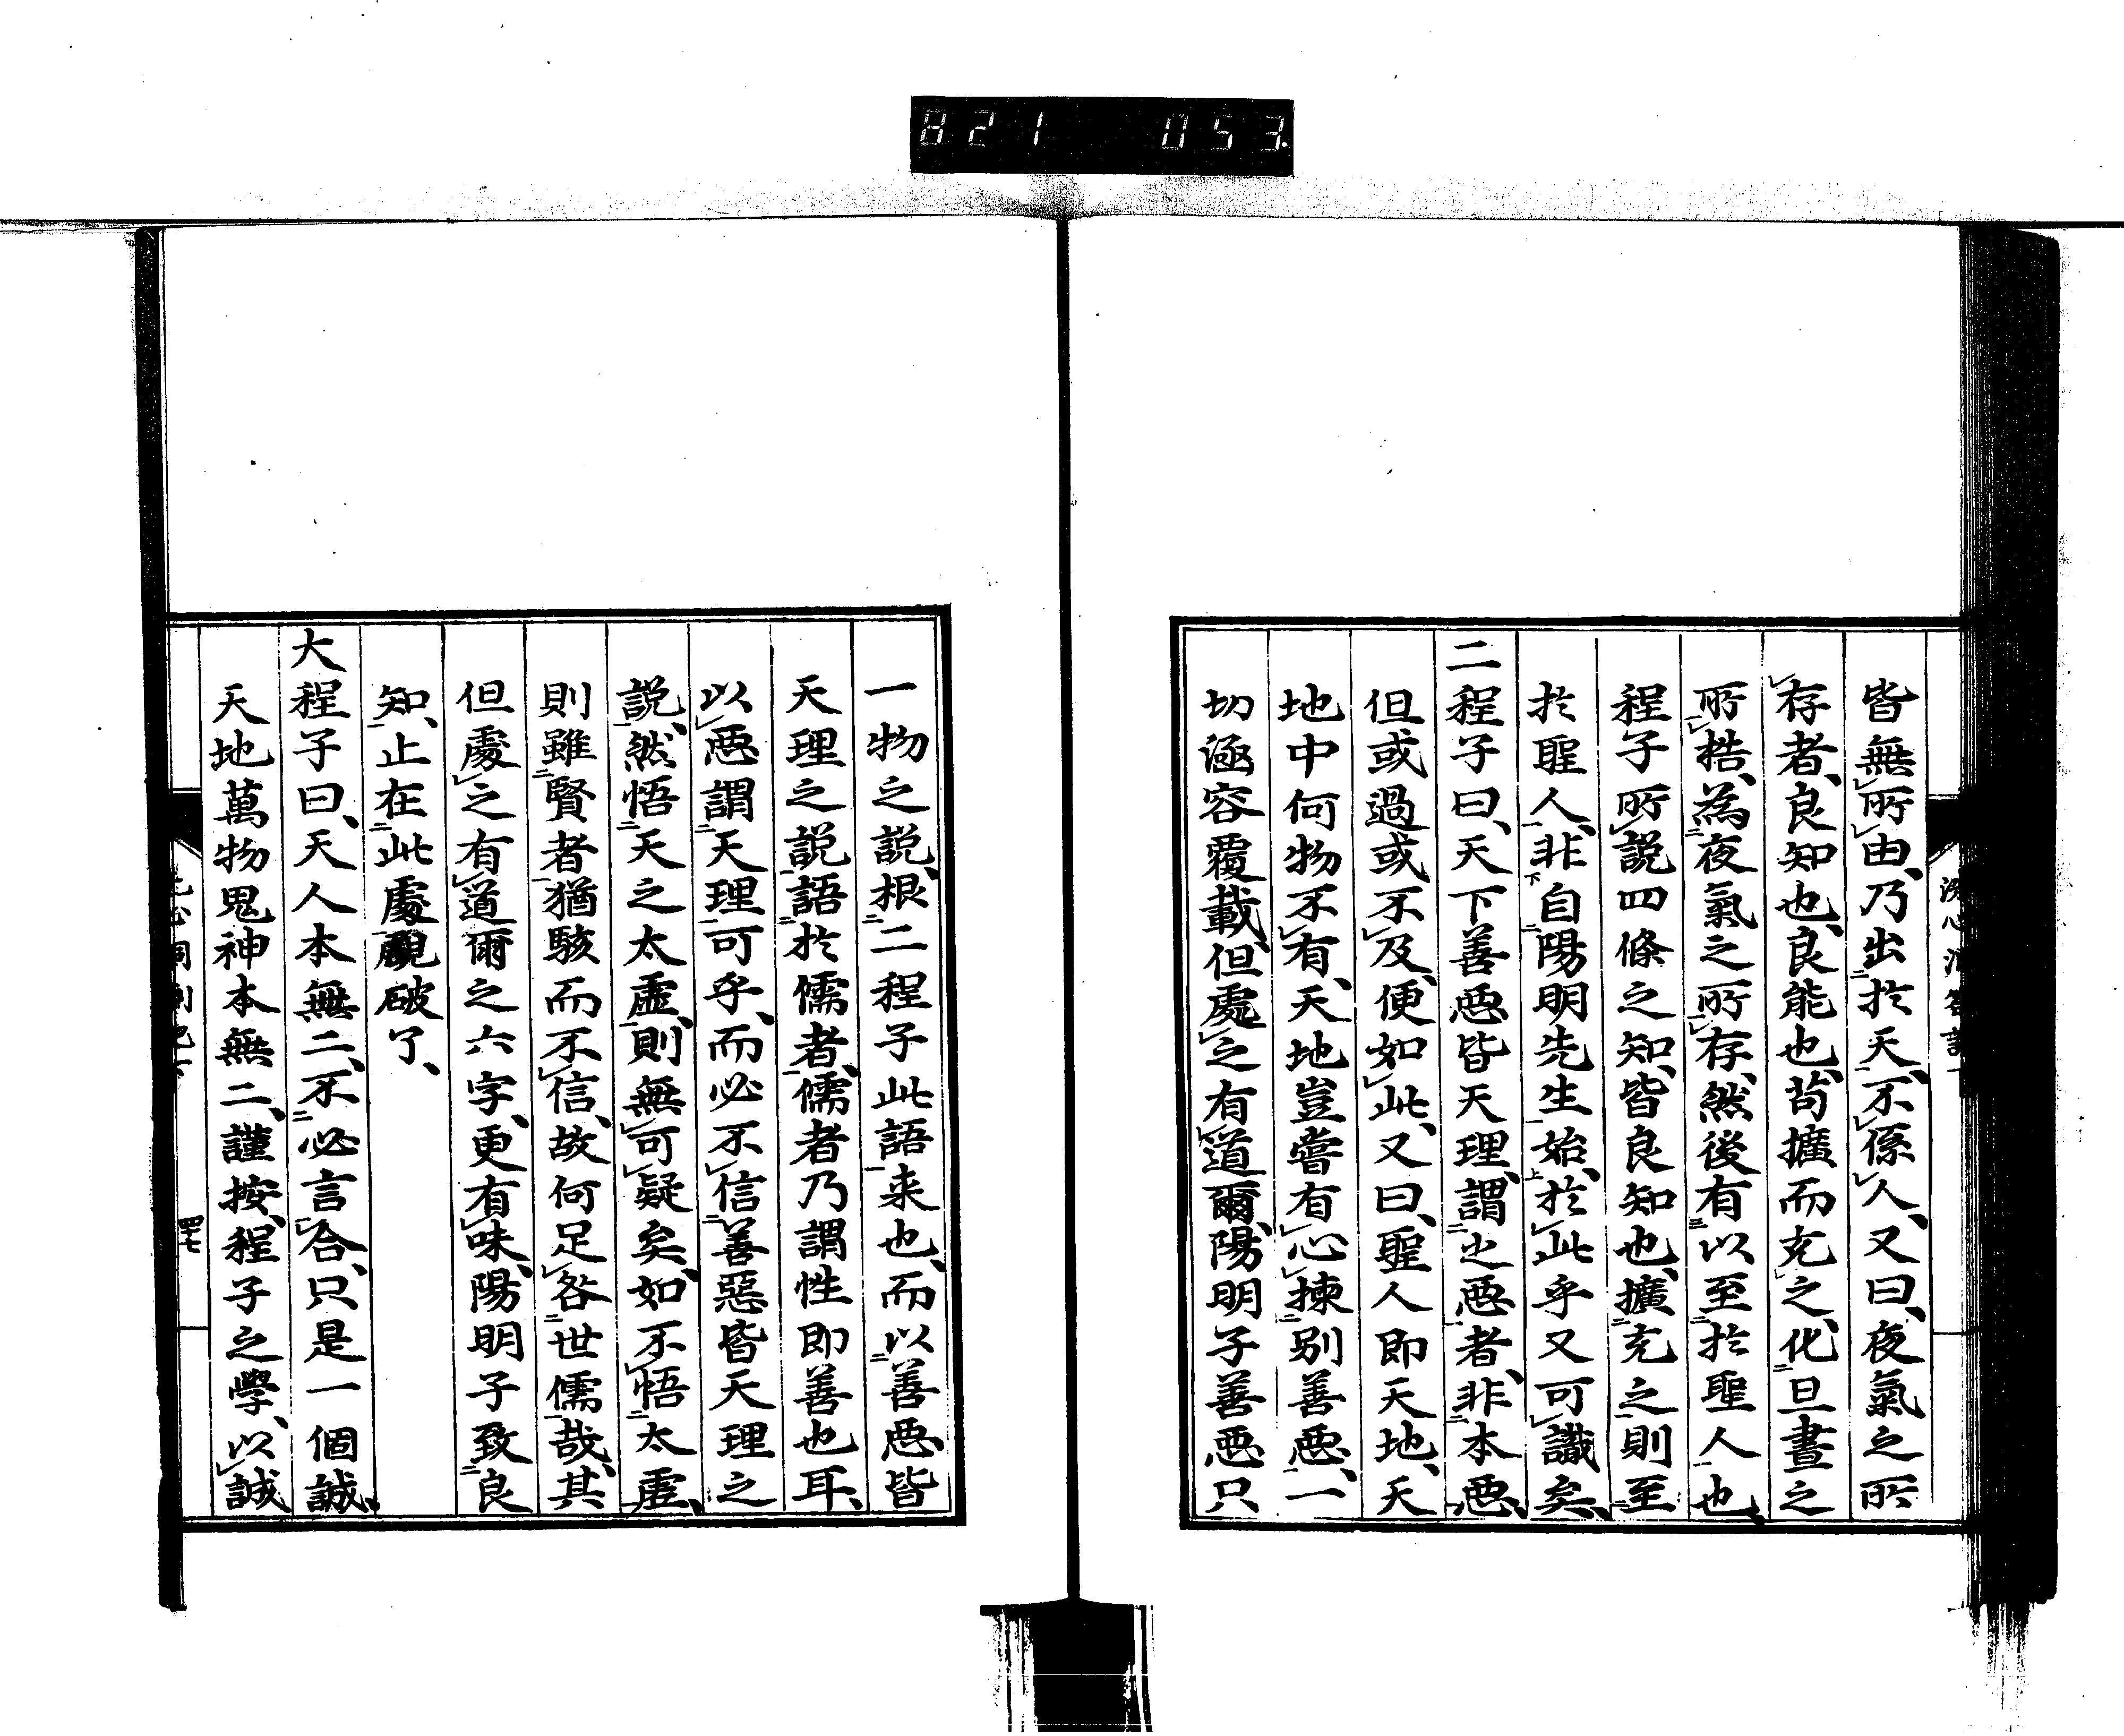 821 053
皆無所由、乃出於天、不係人、又曰、夜氣之所
存者、良知也、良能也、苟擴而充之、化旦晝之
所梏、為夜氣之所存、然後有以至於聖人也、
程子所說四條之知、皆良知也、擴充之則至
於聖人、非自陽明先生始、於此乎又可識矣、
二程子曰、天下善惡皆天理、謂之惡者、非本惡、
但或過或不及、便如此、又曰、聖人即天地、天
地中何物不有、天地豈嘗有心揀別善惡、一
切涵容覆載、但處之有道爾、陽明子善惡只
一物之說、根二程子此語来也、而以善惡皆
天理之說語於儒者、儒者乃謂性即善也耳、
以惡謂天理可乎、而必不信善惡皆天理之
說、然悟天之太虛、則無可疑矣、如不悟太虛、
則雖賢者猶駭而不信、故何足咎世儒哉、其
但處之有道爾之六字、更有味、陽明子致良
知、止在此處覷破了、
大程子曰、天人本無二、不必言合、只是一個誠、
天地萬物鬼神本無二、謹按、程子之學、以誠
四七